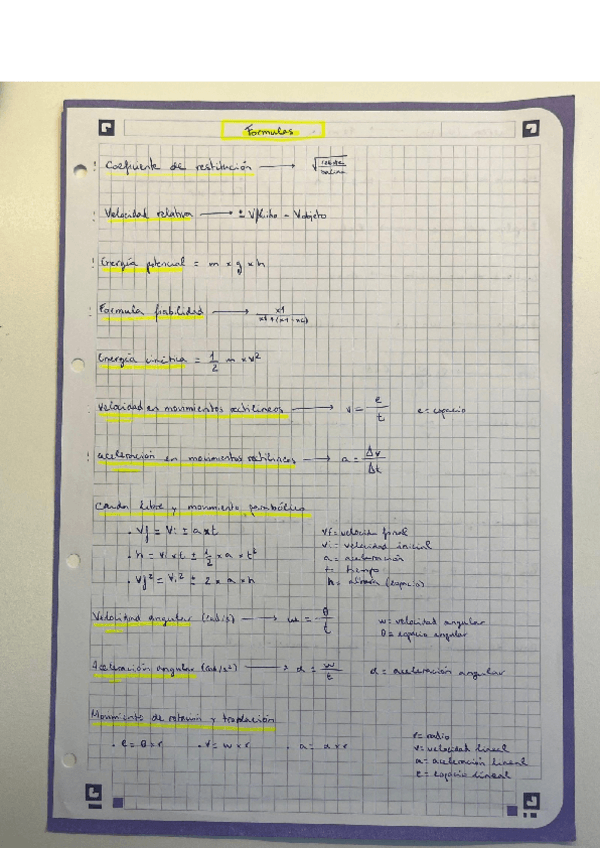 Formulas
Coeficiente de restitución → √
Velocidad relativa → ± V - Vobjeto
Energía potencial = m x g x h
Formula fiabilidad → x1 / x1+(x1-x2)
Energía cinética = 1/2 m x v²
Velocidad en movimientos rectilineos → v = e/t e = espacio
aceleración en movimientos rectilineos → a = Δv/Δt
Caida libre y movimiento parabólico
· Vf = Vi ± a x t Vf = velocidad final
Vi = velocidad inicial
· h = Vi x t ± 1/2 x a x t² a = aceleración
t = tiempo
· Vf² = Vi² ± 2 x a x h h = altura (espacio)
Velocidad angular (rad/s) → w = θ/t w = velocidad angular
θ = espacio angular
Aceleración angular (rad/s²) → α = w/t α = aceleración angular
Movimiento de rotación y traslación
· e = θ x r · v = w x r · a = α x r r = radio
v = velocidad lineal
a = aceleración lineal
e = espacio lineal